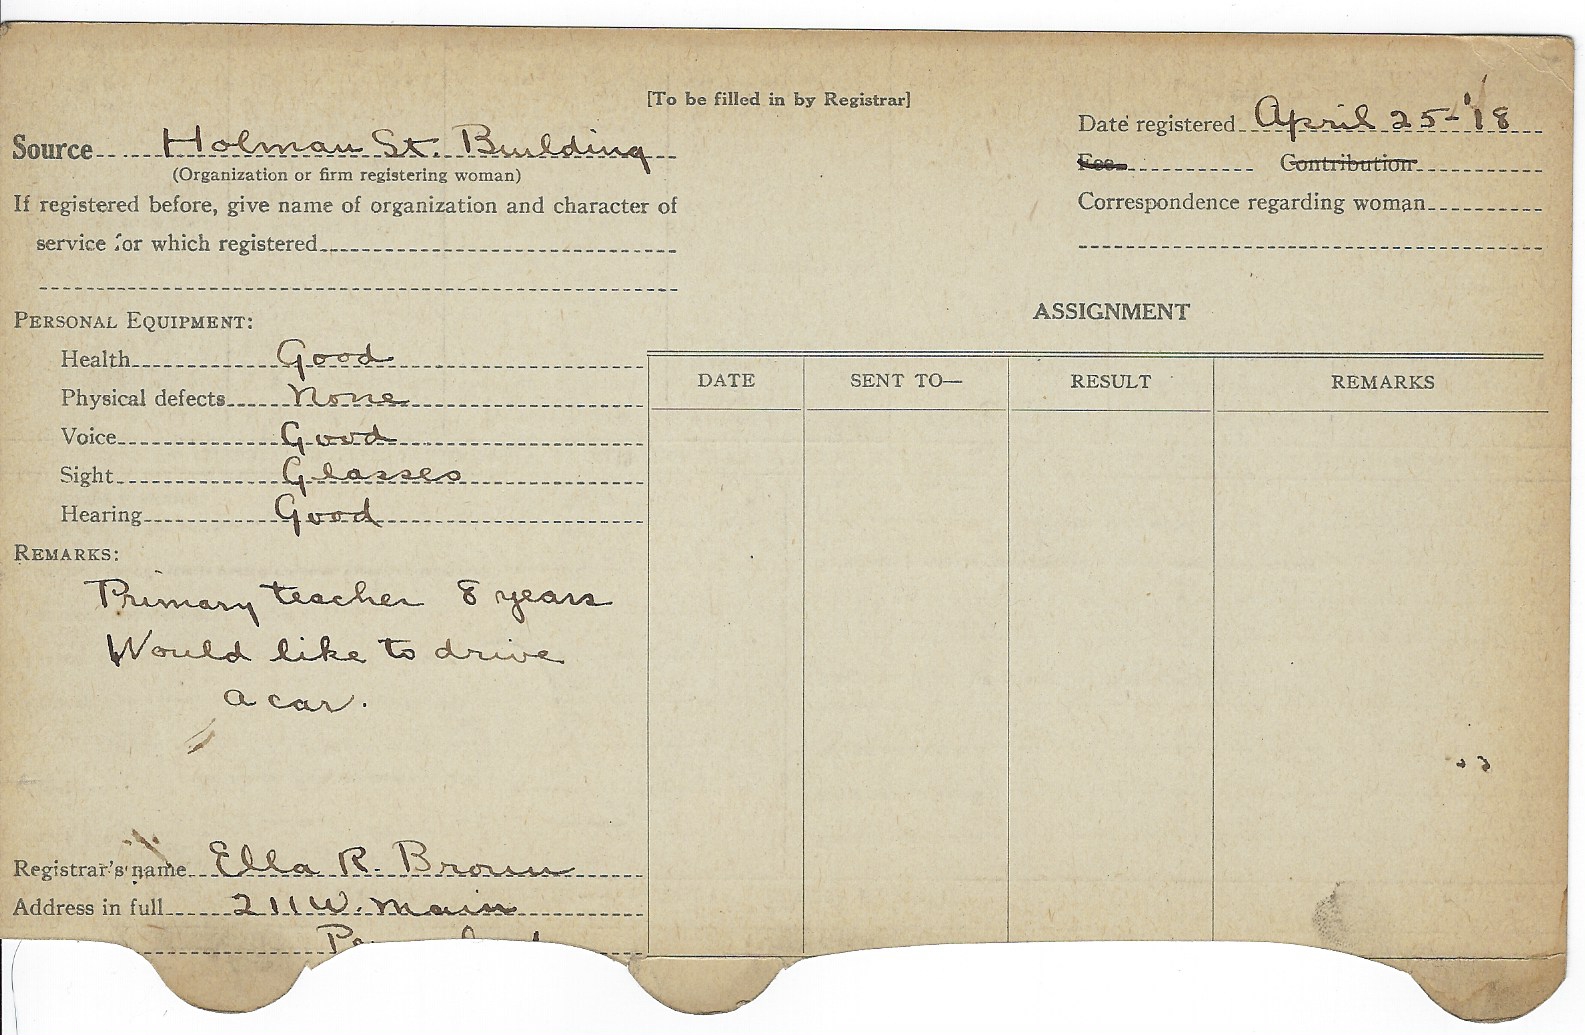 [To be filled in by Registrar]
Source Holman St. Building
(Organization or firm registering woman)
If registered before, give name of organization and character of
service for which registered
Date registered April 25-'18
Fee Contribution
Correspondence regarding woman
PERSONAL EQUIPMENT:
Health Good
Physical defects None
Voice Good
Sight Glasses
Hearing Good
REMARKS:
Primary teacher 8 years
Would like to drive
a car.
Registrar's name Ella R. Brown
Address in full 211 W. Main
ASSIGNMENT
DATE SENT TO— RESULT REMARKS